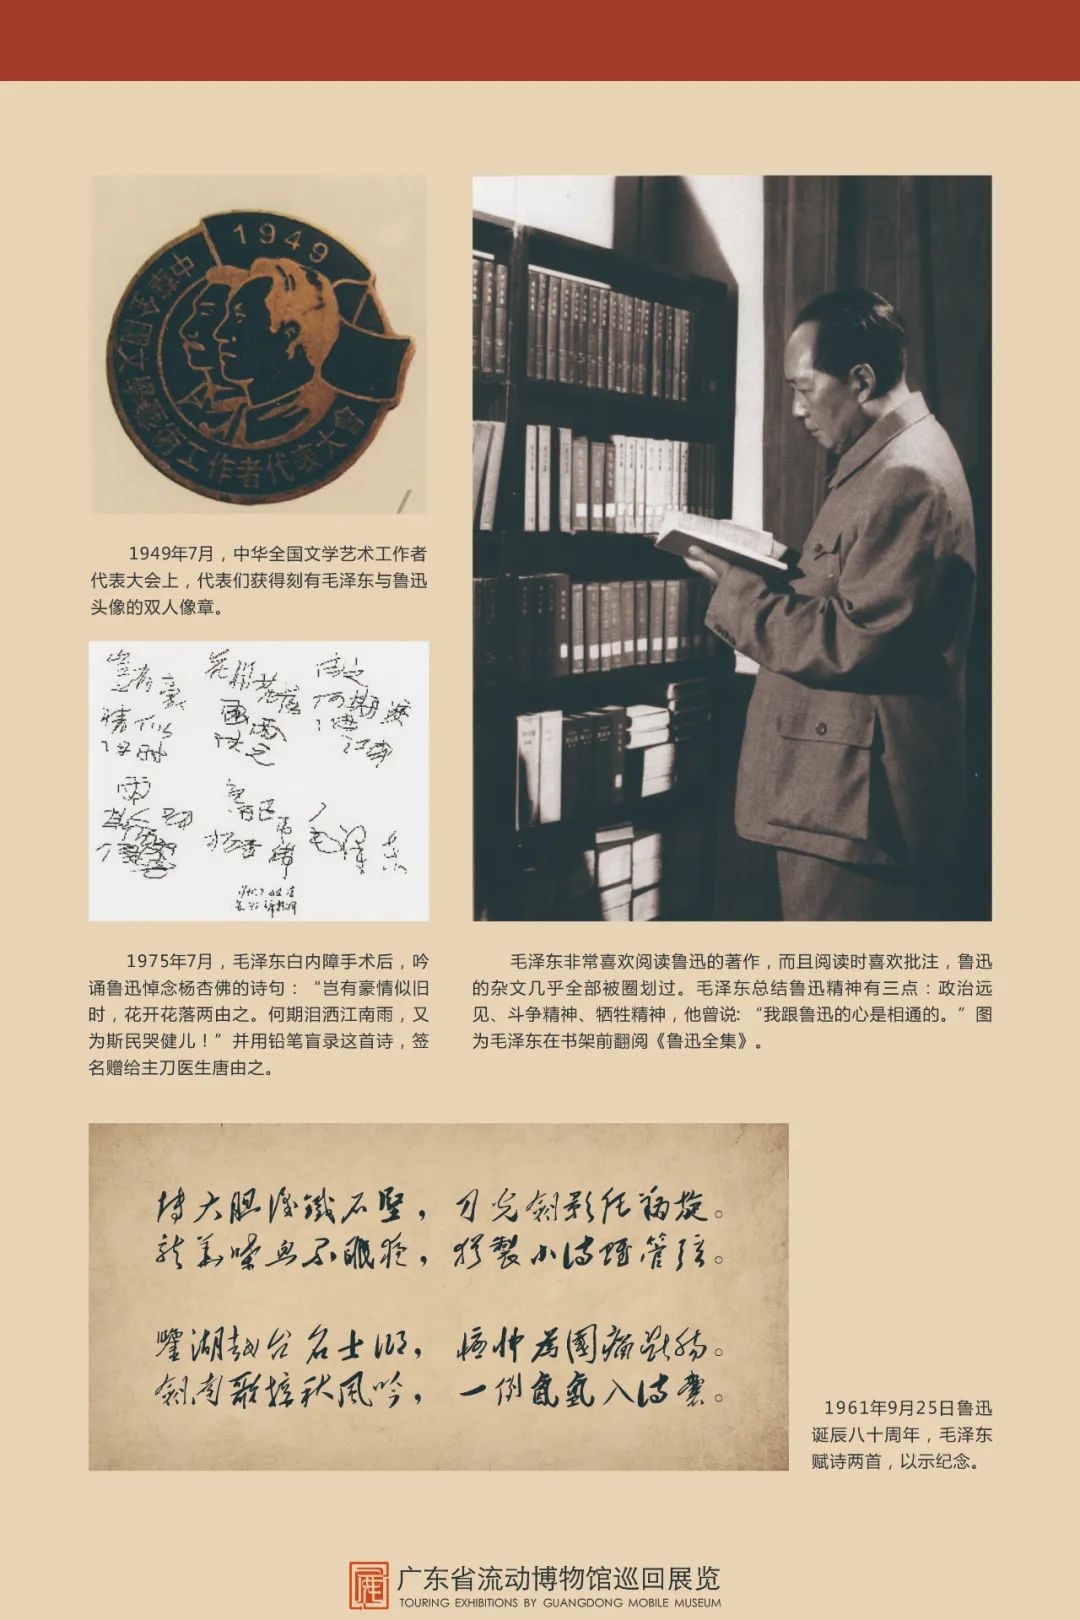 1949
中華全國文學藝術工作者代表大會
1949年7月，中华全国文学艺术工作者
代表大会上，代表们获得刻有毛泽东与鲁迅
头像的双人像章。
岂有豪
情似
旧时
花开花落
两由
之
何期
泪洒
江南
雨
鲁迅
杨杏
毛泽东
1975年7月，毛泽东白内障手术后，吟
诵鲁迅悼念杨杏佛的诗句：“岂有豪情似旧
时，花开花落两由之。何期泪洒江南雨，又
为斯民哭健儿！”并用铅笔盲录这首诗，签
名赠给主刀医生唐由之。
毛泽东非常喜欢阅读鲁迅的著作，而且阅读时喜欢批注，鲁迅
的杂文几乎全部被圈划过。毛泽东总结鲁迅精神有三点：政治远
见、斗争精神、牺牲精神，他曾说:“我跟鲁迅的心是相通的。”图
为毛泽东在书架前翻阅《鲁迅全集》。
博大胆识鐵石堅，刀光劍影任翔旋。
龍華喋血不眠夜，猶製小诗賦管弦。
鑒湖越台名士鄉，憂忡為國痛斷腸。
劍南歌接秋風吟，一例氤氳入诗囊。
1961年9月25日鲁迅
诞辰八十周年，毛泽东
赋诗两首，以示纪念。
广东省流动博物馆巡回展览
TOURING EXHIBITIONS BY GUANGDONG MOBILE MUSEUM